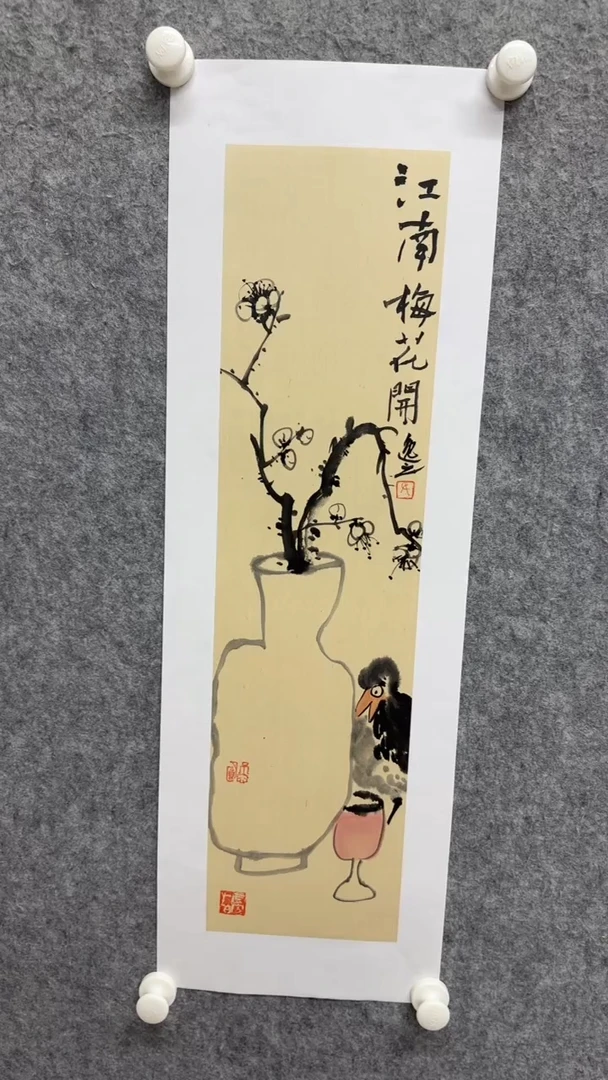 江南梅花開逸